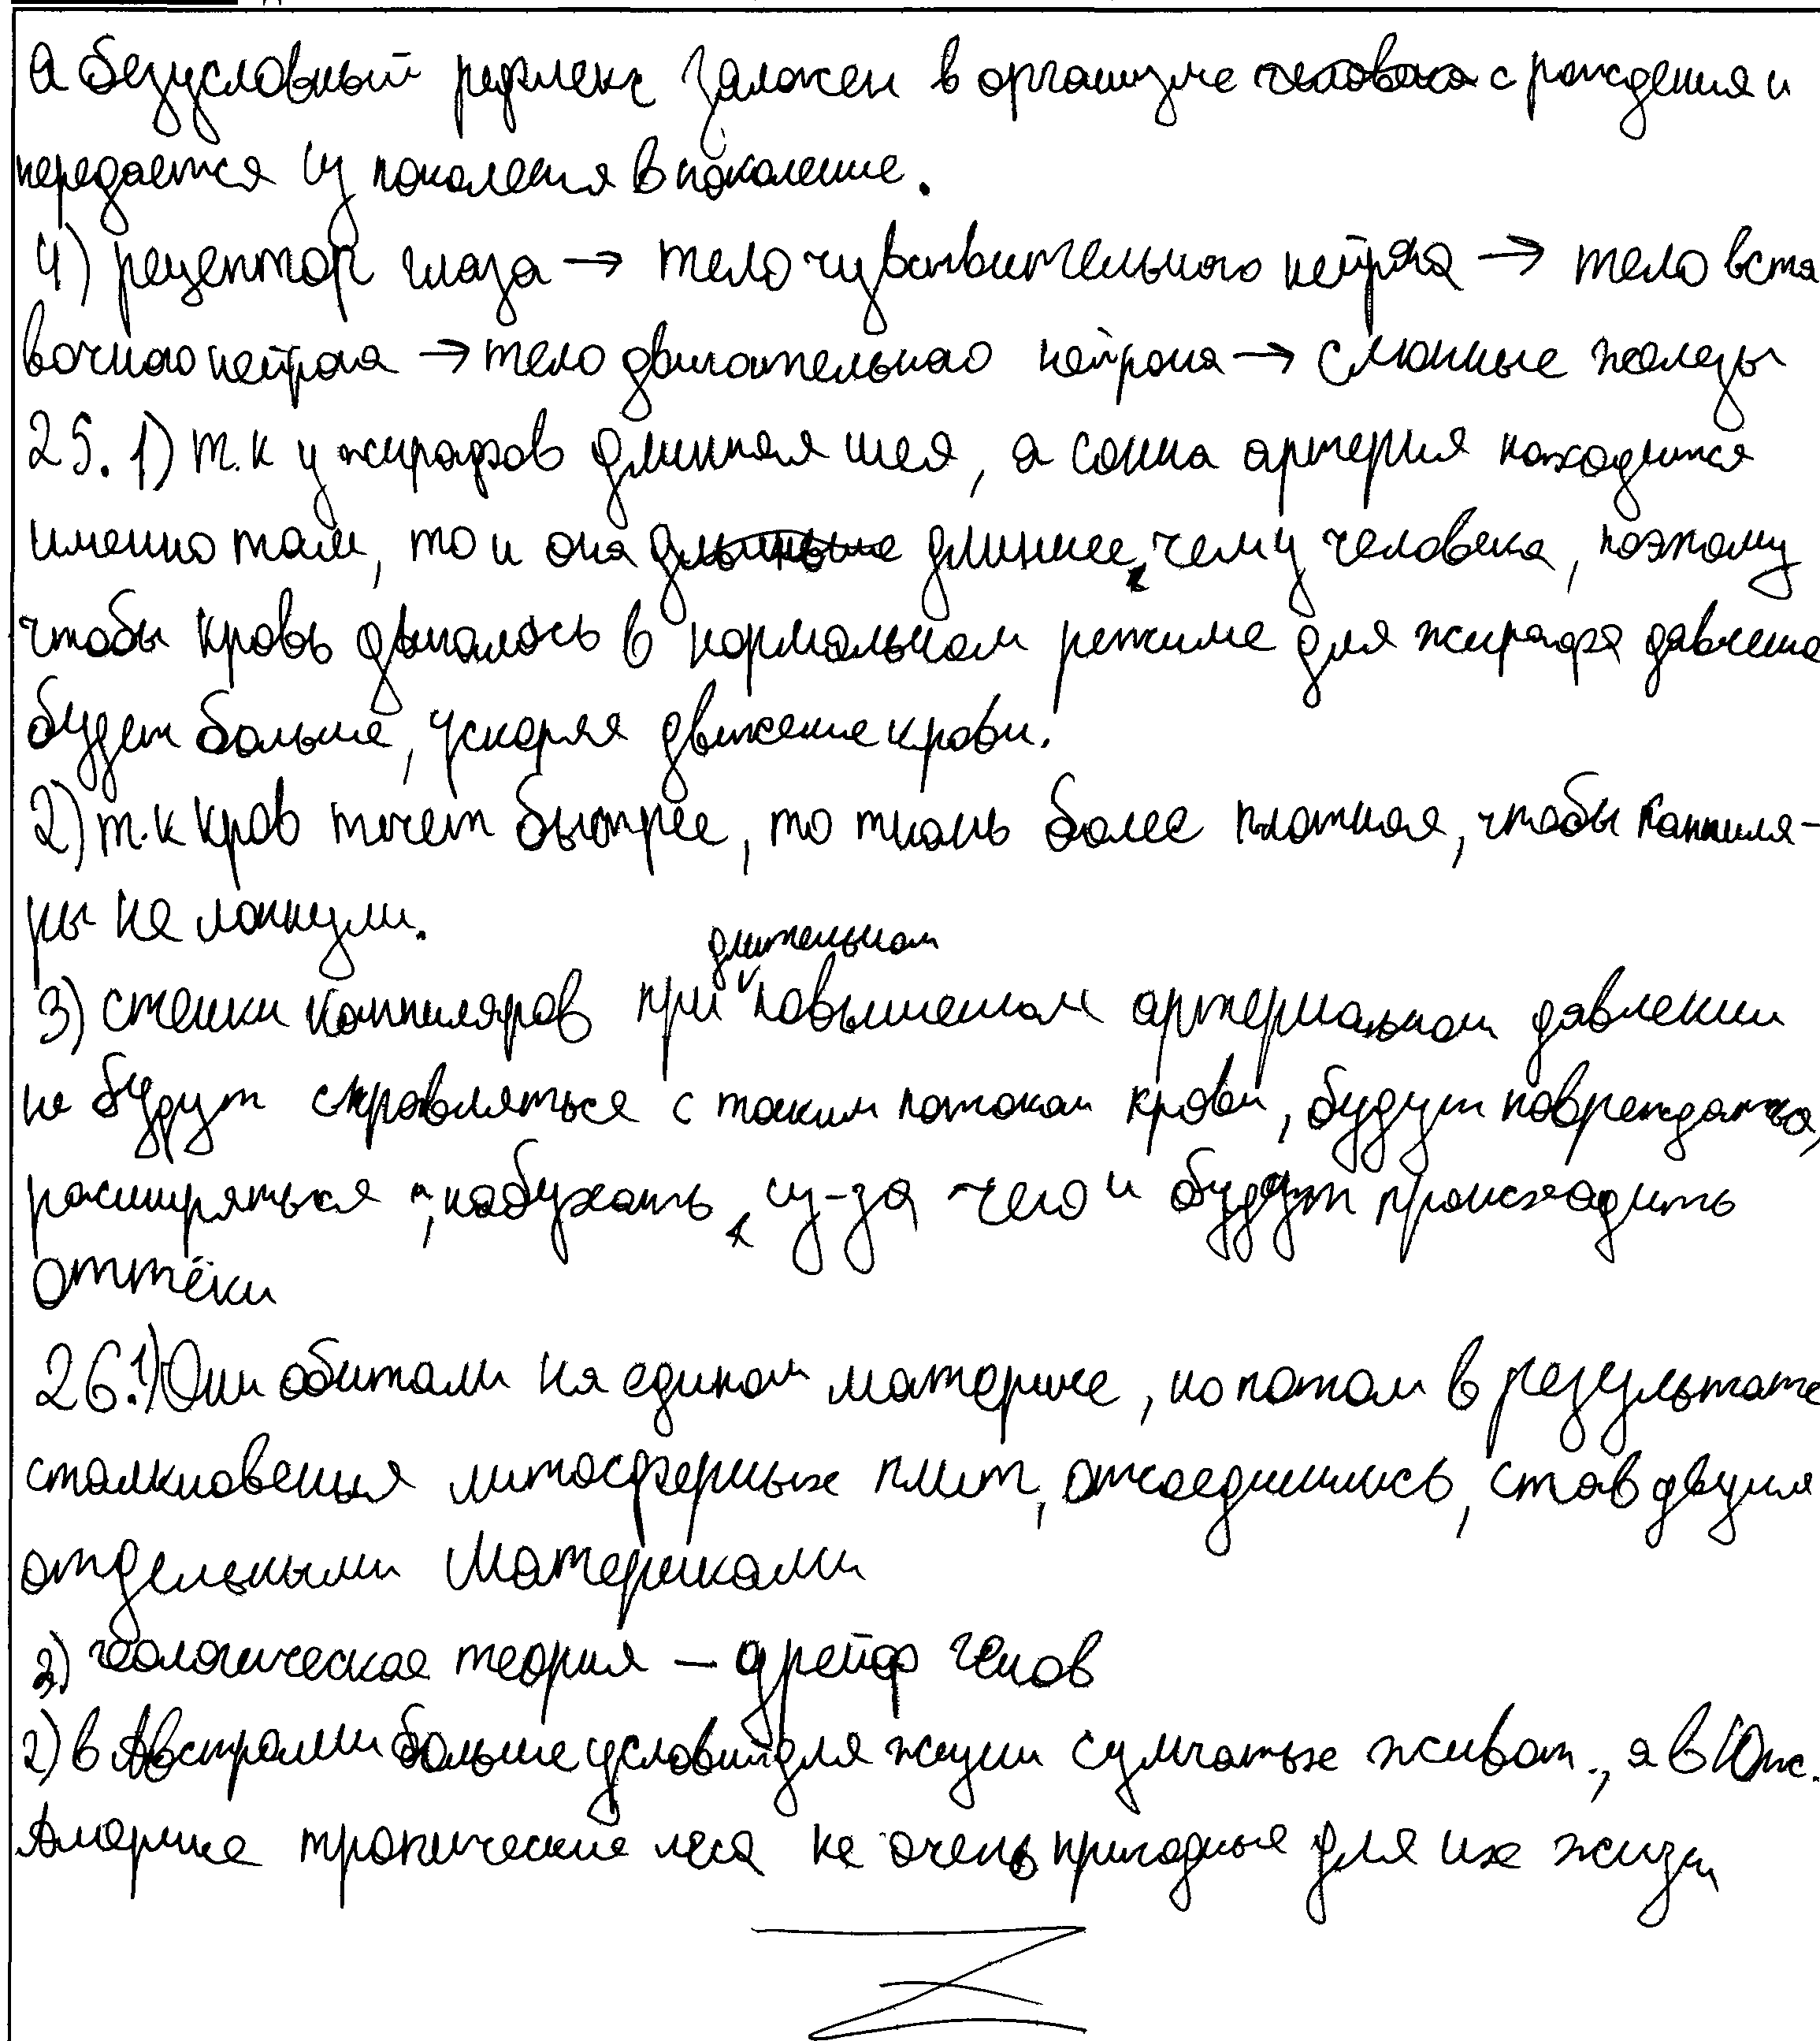 а безусловный рефлекс заложен в организме человека с рождения и
передается из поколения в поколение.
4) рецептор глаза → тело чувствительного нейрона → тело вста
вочного нейрона → тело двигательного нейрона → слюнные железы
25. 1) т.к у жирафов длинная шея, а сонна артерия находится
именно там, то и она длиньше длиннее, чем у человека, поэтому
чтобы кровь двигалась в нормальном режиме для жирафа давление
будет больше, ускоряя движение крови.
2) т.к кров течет быстрее, то ткань более плотная, чтобы каппиля-
ры не лопнули.
длительном
3) стенки каппиляров при повышенном артериальном давлении
не будут справляться с таким потоком крови, будут повреждаться,
расширяться, набухать, из-за чего и будут происходить
оттёки
26.1) Они обитали на едином материке, но потом в результате
столкновения литосферных плит, отсоединились, став двумя
отдельными материками
3) геологическая теория – дрейф генов
2) в Австралии больше условий для жизни сумчатых живот., а в Юж.
Америке тропические леса не очень пригодные для их жизни